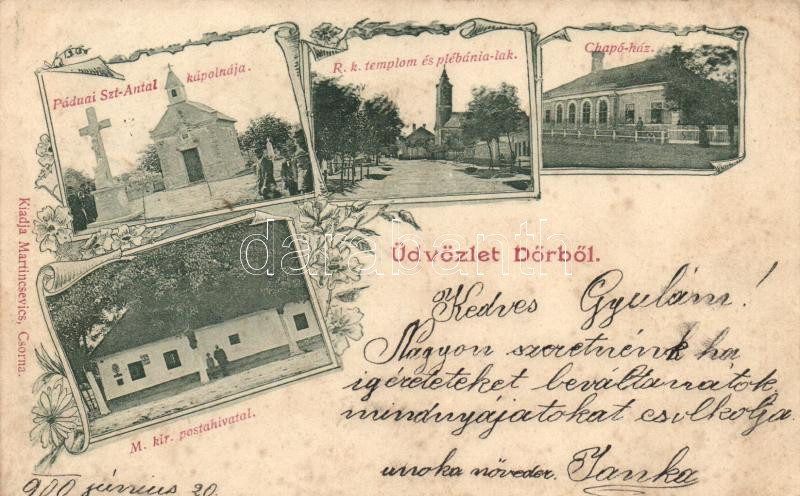 Páduai Szt-Antal kápolnája.
R. k. templom és plébánia-lak.
Chapó-ház.
Kiadja Martincsevics, Csorna.
darabanth
Üdvözlet Dőrből.
Kedves Gyulám!
Nagyon szeretnénk ha
igéreteteket beváltanátok
mindnyájatokat csókolja
unoka növéder. Janka
M. kir. postahivatal.
900 június 20.